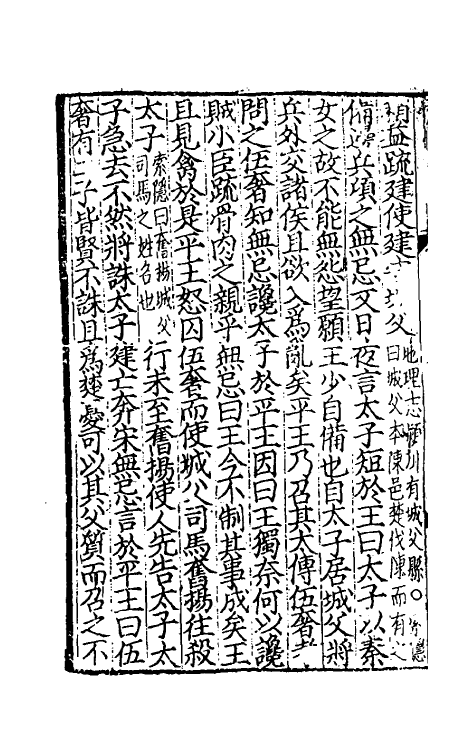 稍益疏建使建守城父地理志潁川有城父縣○索隱
曰城父本陳邑楚伐陳而有之
備邊兵頃之無忌又日夜言太子短於王曰太子以秦
女之故不能無怨望願王少自備也自太子居城父將
兵外交諸侯且欲入為亂矣平王乃召其太傅伍奢考
問之伍奢知無忌讒太子於平王因曰王獨奈何以讒
賊小臣疏骨肉之親乎無忌曰王今不制其事成矣王
且見禽於是平王怒囚伍奢而使城父司馬奮揚往殺
太子索隱曰奮揚城父
司馬之姓名也行未至奮揚使人先告太子太
子急去不然將誅太子建亡奔宋無忌言於平王曰伍
奢有二子皆賢不誅且為楚憂可以其父質而召之不